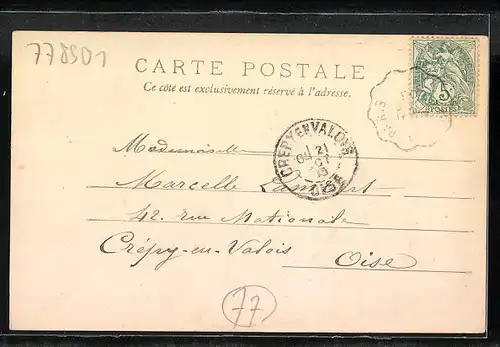 778901
CARTE POSTALE
Ce côté est exclusivement réservé à l'adresse.
5
POSTES
CREPY-EN-VALOIS
21
OISE
Mademoiselle
Marcelle Lambert
42, rue Nationale
Crépy-en-Valois
Oise
77